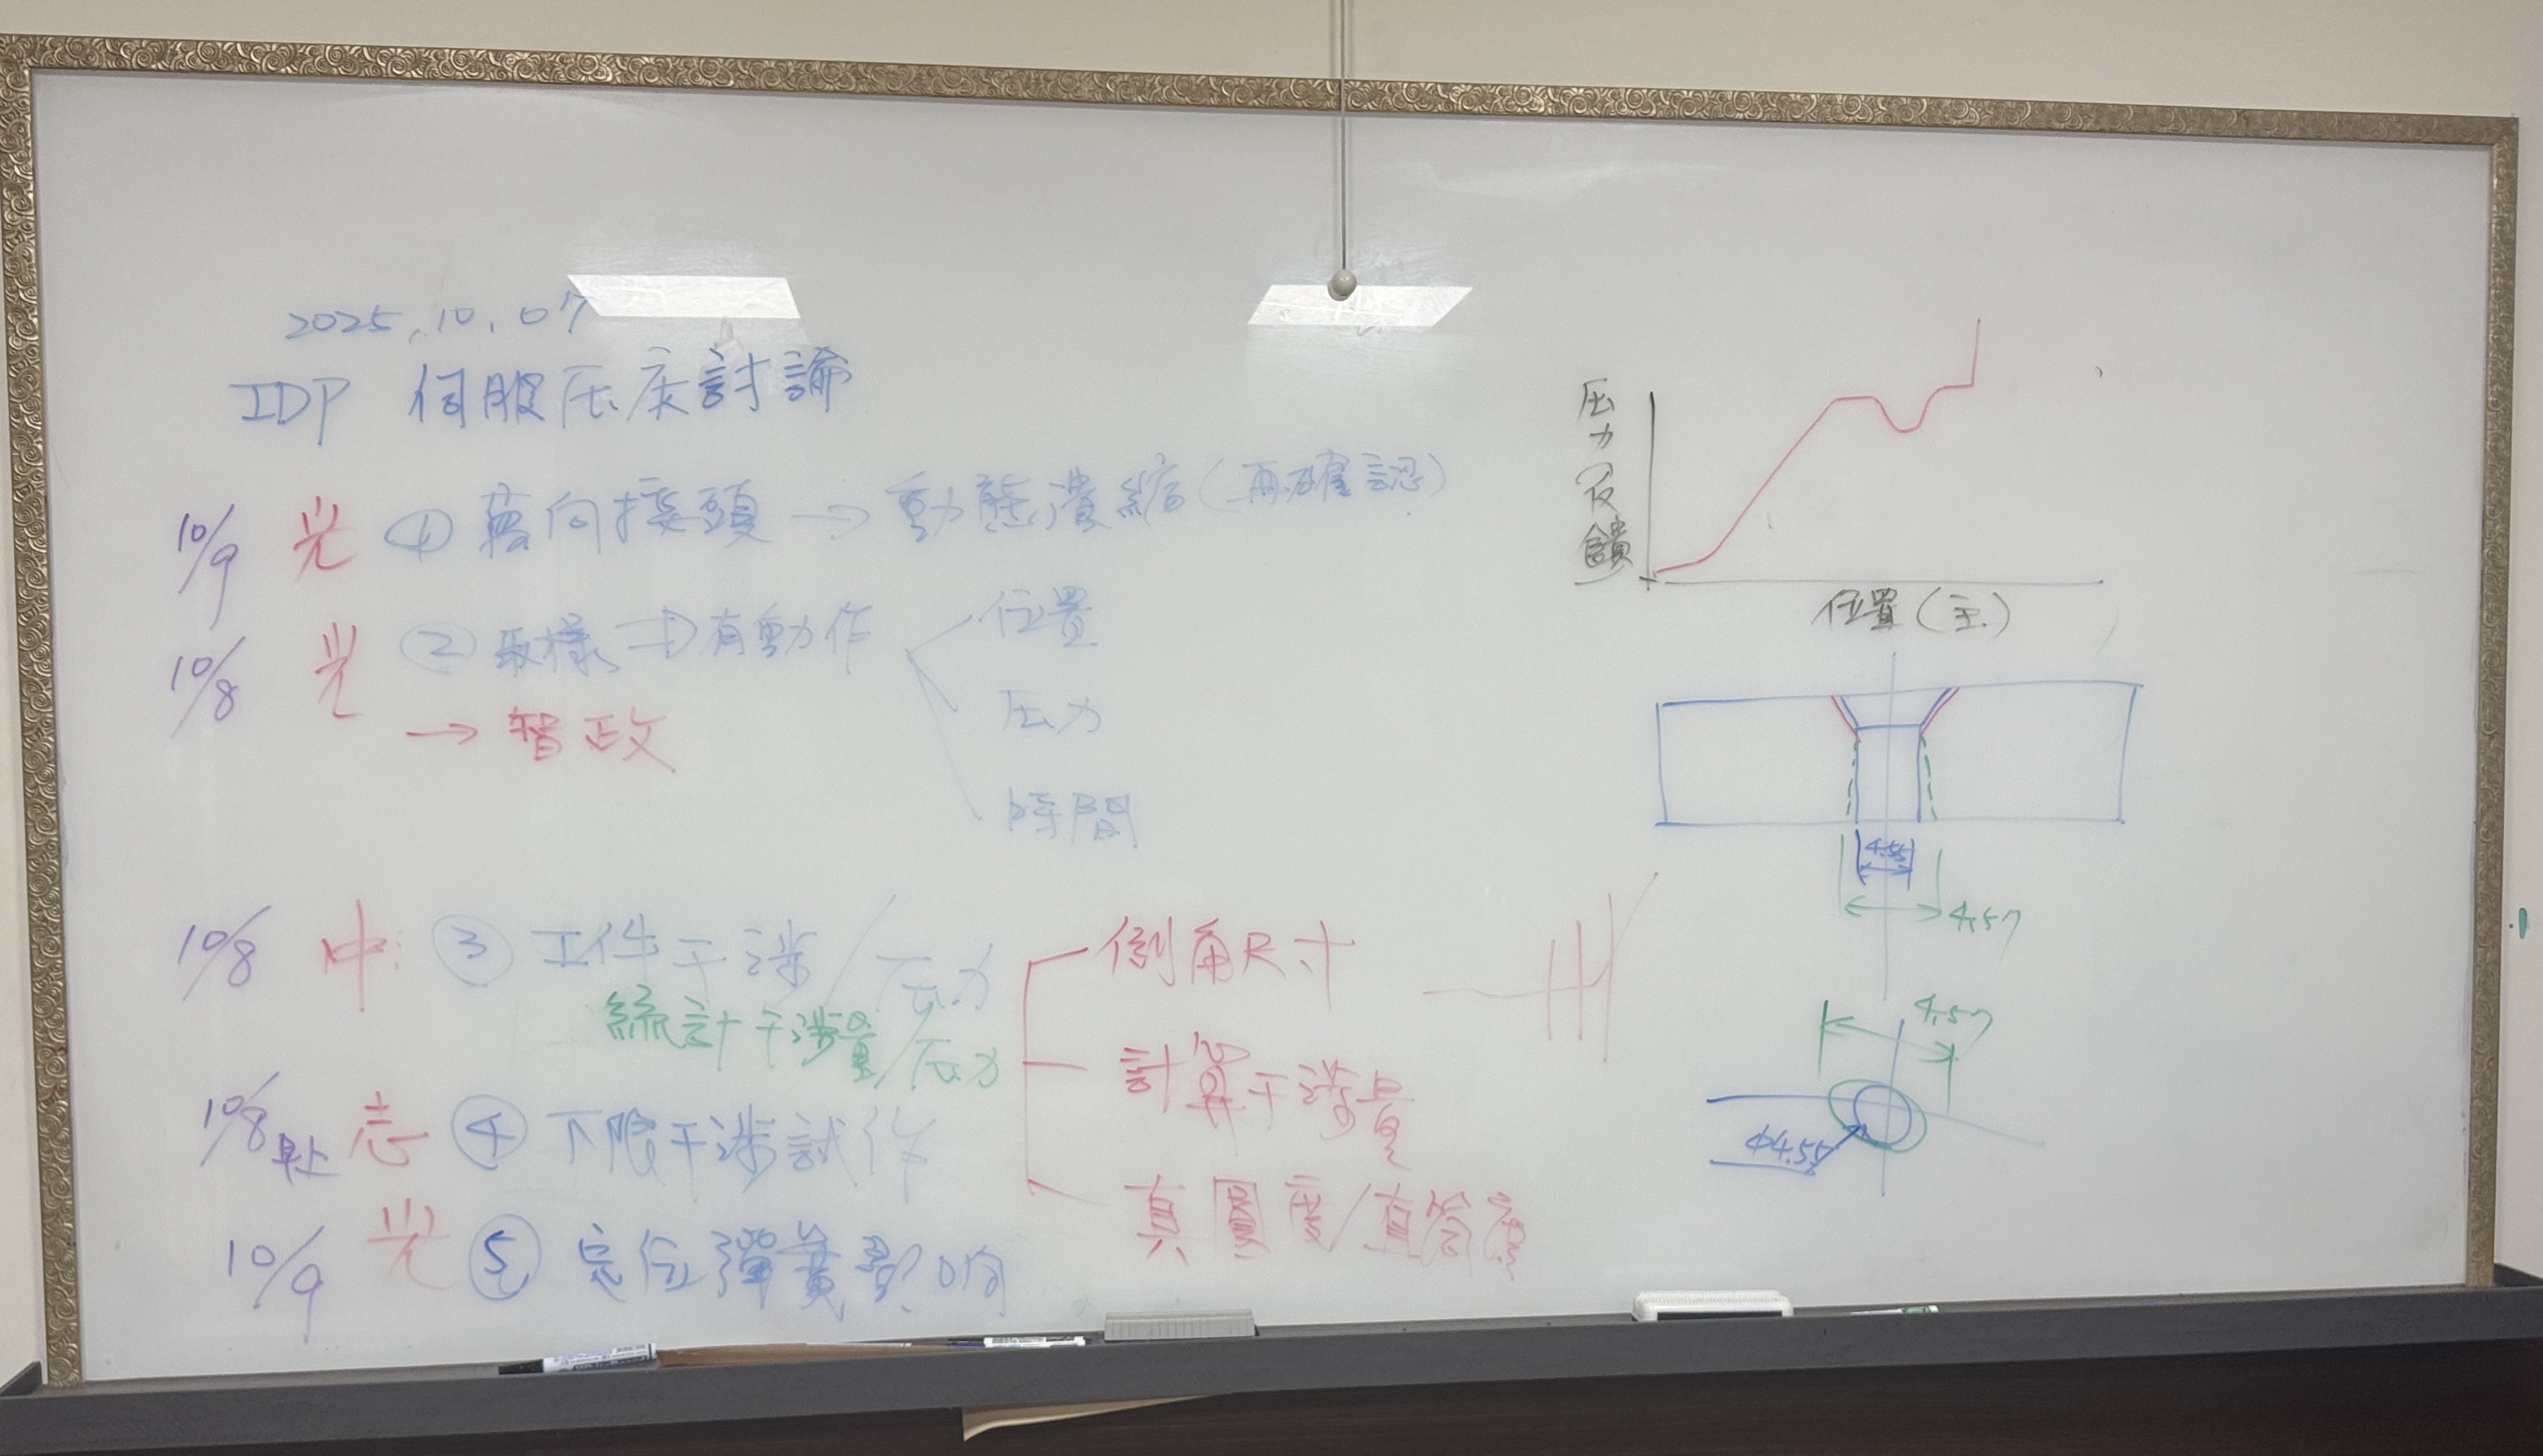 2025.10.07
IDP 伺服压床討論
10/9 光 ① 萬向接頭 → 動態潰縮(再確認)
10/8 光 ② 取樣 → 有動作
位置
压力
時間
→ 智政
10/8 中: ③ 工件干涉/压力
統計干涉量/压力
倒角尺寸
計算干涉量
真圓度/直
10/8 早上 志 ④ 下限干涉試作
10/9 光 ⑤ 定位彈簧影响
压力反饋
位置(主)
4.55
4.57
4.57
Φ4.55